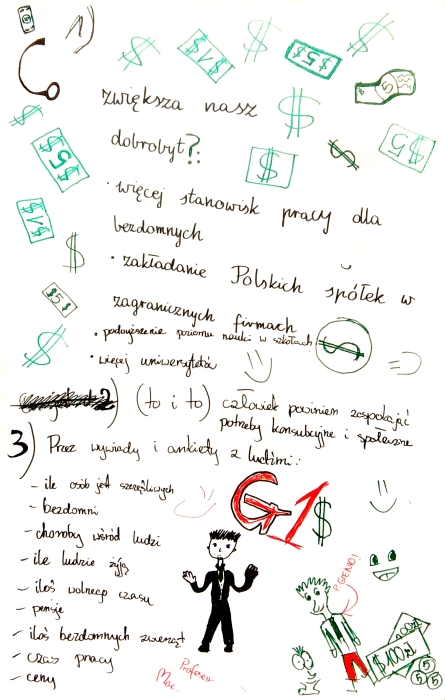 1)
$
$1$
$
$5$
$
5
zwiększa nasz
$
$
dobrobyt?:
$5$
$
$
$5
• więcej stanowisk pracy dla
bezdomnych
$1$
$
• zakładanie Polskich spółek w
zagranicznych firmach
$5$
• podwyższenie poziomu nauki w szkołach
$
$
• więcej uniwersytetów
2) (to i to) człowiek powinien zaspokajać
potrzeby konsumcyjne i społeczne
3) Przez wywiady i ankiety z ludźmi:
- ile osób jest szczęśliwych
G1$
- bezdomni
- choroby wśród ludzi
- ile ludzie żyją
- ilość wolnego czasu
P.GENIO!
- pensje
- ilość bezdomnych zwierząt
- czas pracy
- ceny
Profesor
Mac.
$100zł
5
5
5